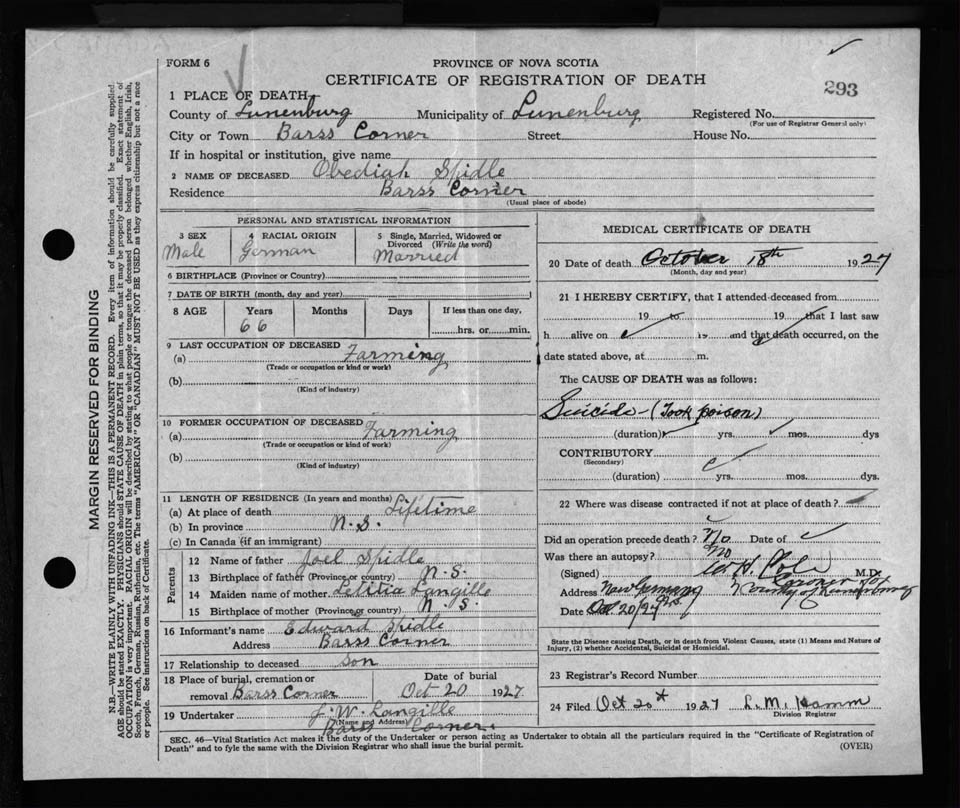 FORM 6
PROVINCE OF NOVA SCOTIA
CERTIFICATE OF REGISTRATION OF DEATH
293
1 PLACE OF DEATH—
County of Lunenburg Municipality of Lunenburg Registered No.
(For use of Registrar General only)
City or Town Barss Corner Street House No.
If in hospital or institution, give name
2 NAME OF DECEASED Obediah Spidle
Residence Barss Corner
(Usual place of abode)
PERSONAL AND STATISTICAL INFORMATION
3 SEX
Male
4 RACIAL ORIGIN
German
5 Single, Married, Widowed or
Divorced (Write the word)
Married
6 BIRTHPLACE (Province or Country)
7 DATE OF BIRTH (month, day and year)
8 AGE Years Months Days If less than one day,
66 hrs. or min.
9 LAST OCCUPATION OF DECEASED
(a) Farming
(Trade or occupation or kind or work)
(b)
(Kind of industry)
10 FORMER OCCUPATION OF DECEASED
(a) Farming
(Trade or occupation or kind of work)
(b)
(Kind of industry)
11 LENGTH OF RESIDENCE (In years and months)
(a) At place of death Lifetime
(b) In province N.S.
(c) In Canada (if an immigrant)
Parents
12 Name of father Joel Spidle
13 Birthplace of father (Province or country) N-S-
14 Maiden name of mother Letitia Langille
15 Birthplace of mother (Province or country) N. S.
16 Informant's name Edward Spidle
Address Barss Corner
17 Relationship to deceased son
18 Place of burial, cremation or
removal Barss Corner
Date of burial
Oct 20 1927
19 Undertaker J. W. Langille
(Name and Address)
Barss Corner
MEDICAL CERTIFICATE OF DEATH
20 Date of death October 18th 1927
(Month, day and year)
21 I HEREBY CERTIFY, that I attended deceased from
19 to 19 that I last saw
h alive on 19 and that death occurred, on the
date stated above, at m.
The CAUSE OF DEATH was as follows:
Suicide - (Took poison)
(duration) yrs. mos. dys
CONTRIBUTORY
(Secondary)
(duration) yrs. mos. dys.
22 Where was disease contracted if not at place of death?
Did an operation precede death? No Date of
Was there an autopsy? no
(Signed) Cole M.D.
Address New Germany County of Lunenburg
Date Oct 20/27
State the Disease causing Death, or in death from Violent Causes, state (1) Means and Nature of
Injury, (2) whether Accidental, Suicidal or Homicidal.
23 Registrar's Record Number
24 Filed Oct 20th 1927 L. M. Hamm
Division Registrar
SEC. 46—Vital Statistics Act makes it the duty of the Undertaker or person acting as Undertaker to obtain all the particulars required in the "Certificate of Registration of
Death" and to fyle the same with the Division Registrar who shall issue the burial permit.
(OVER)
MARGIN RESERVED FOR BINDING
N.B.—WRITE PLAINLY WITH UNFADING INK—THIS IS A PERMANENT RECORD. Every item of information should be carefully supplied
AGE should be stated EXACTLY. PHYSICIANS should STATE CAUSE OF DEATH in plain terms, so that it may be properly classified. Exact statement of
OCCUPATION is very important. RACIAL ORIGIN will be described by stating to what people or tongue the deceased person belonged whether English, Irish,
Scotch, French, German, Russian, Ruthenian, etc. The terms "AMERICAN" OR "CANADIAN" MUST NOT BE USED as they express citizenship but not a race
or people. See instructions on back of Certificate.